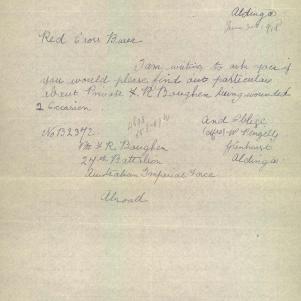 Aldinga
June 20 1918
Red Cross Buree
I am writing to ask you if
you would please find out particulars
about Private H R Boughen being wounded
2 Occasion
And Oblige
No B2372 (Mrs) W Pengelly
Pte H R Boughen Glenhurst
27th Battalion Aldinga
Australian Imperial Force
Abroad